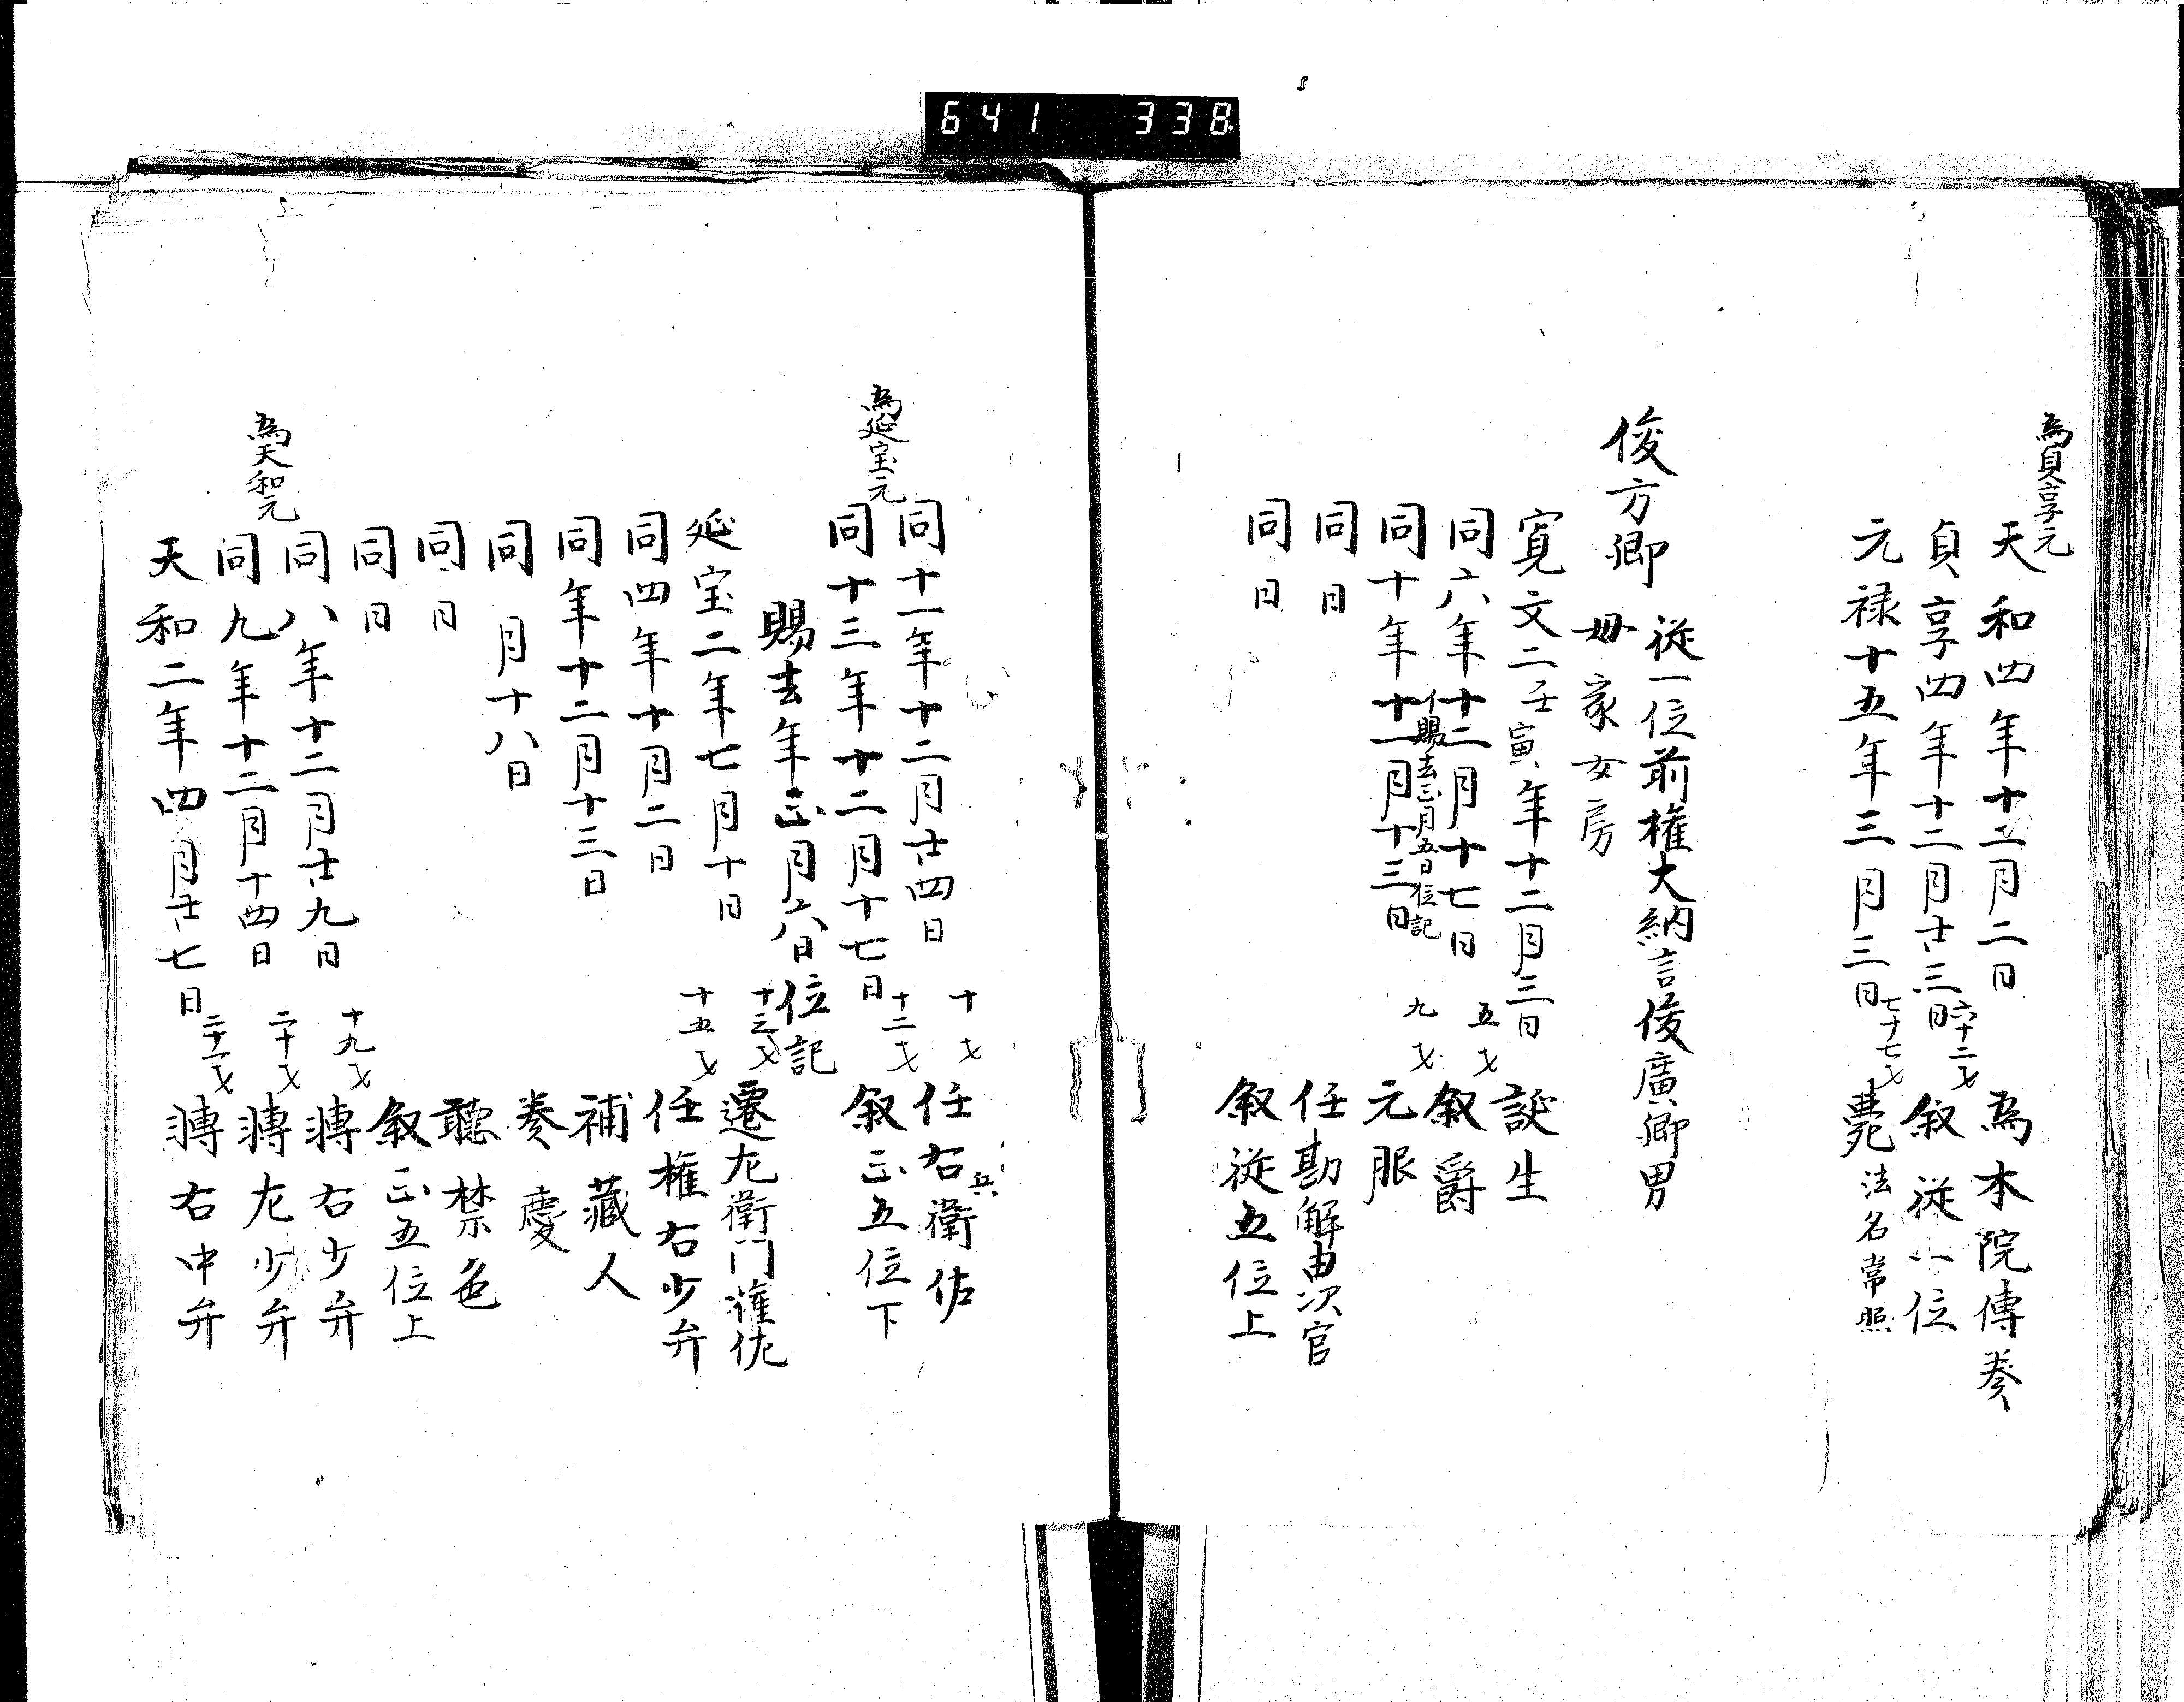 641 338
為貞享元
天和四年十二月二日 為本院傳奏
貞享四年十二月廿三日 六十二才 叙従一位
元禄十五年三月三日 七十七才 薨 法名常照
俊方卿 従一位前権大納言俊廣卿男
母家女房
寛文二壬寅年十二月三日 誕生
同六年十二月十七日 五才 叙爵
賜去正月五日位記
同十年十一月十三日 九才 元服
同日 任勘解由次官
同日 叙従五位上
同十一年十二月廿四日 十才 任右衛佐
兵
為延宝元
同十三年十二月十七日 十二才 叙正五位下
賜去年正月六日位記
延宝二年七月十日 十三才 遷左衛門権佐
同四年十月二日 十五才 任権右少弁
同年十二月十三日 補蔵人
同月十八日 奏慶
同日 聴禁色
同日 叙正五位上
同八年十二月廿九日 十九才 轉右少弁
為天和元
同九年十二月十四日 二十才 轉左少弁
天和二年四月廿七日 二十一才 轉右中弁